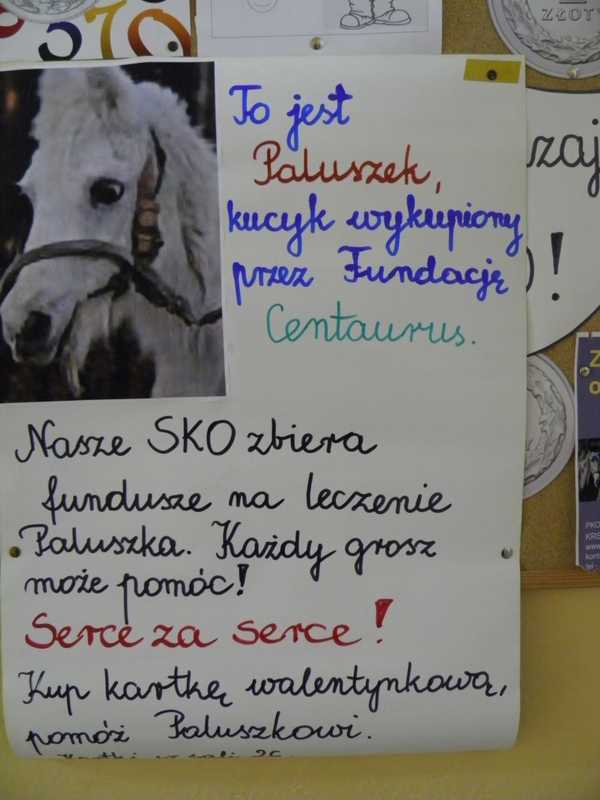 570
ZŁOTY
To jest
Paluszek,
kucyk wykupiony
przez Fundację
Centaurus.
zaj
!
Nasze SKO zbiera
fundusze na leczenie
Paluszka. Każdy grosz
może pomóc!
Serce za serce!
Kup kartkę walentynkową,
pomóż Paluszkowi.
"Z
o
PKO
KRS
www